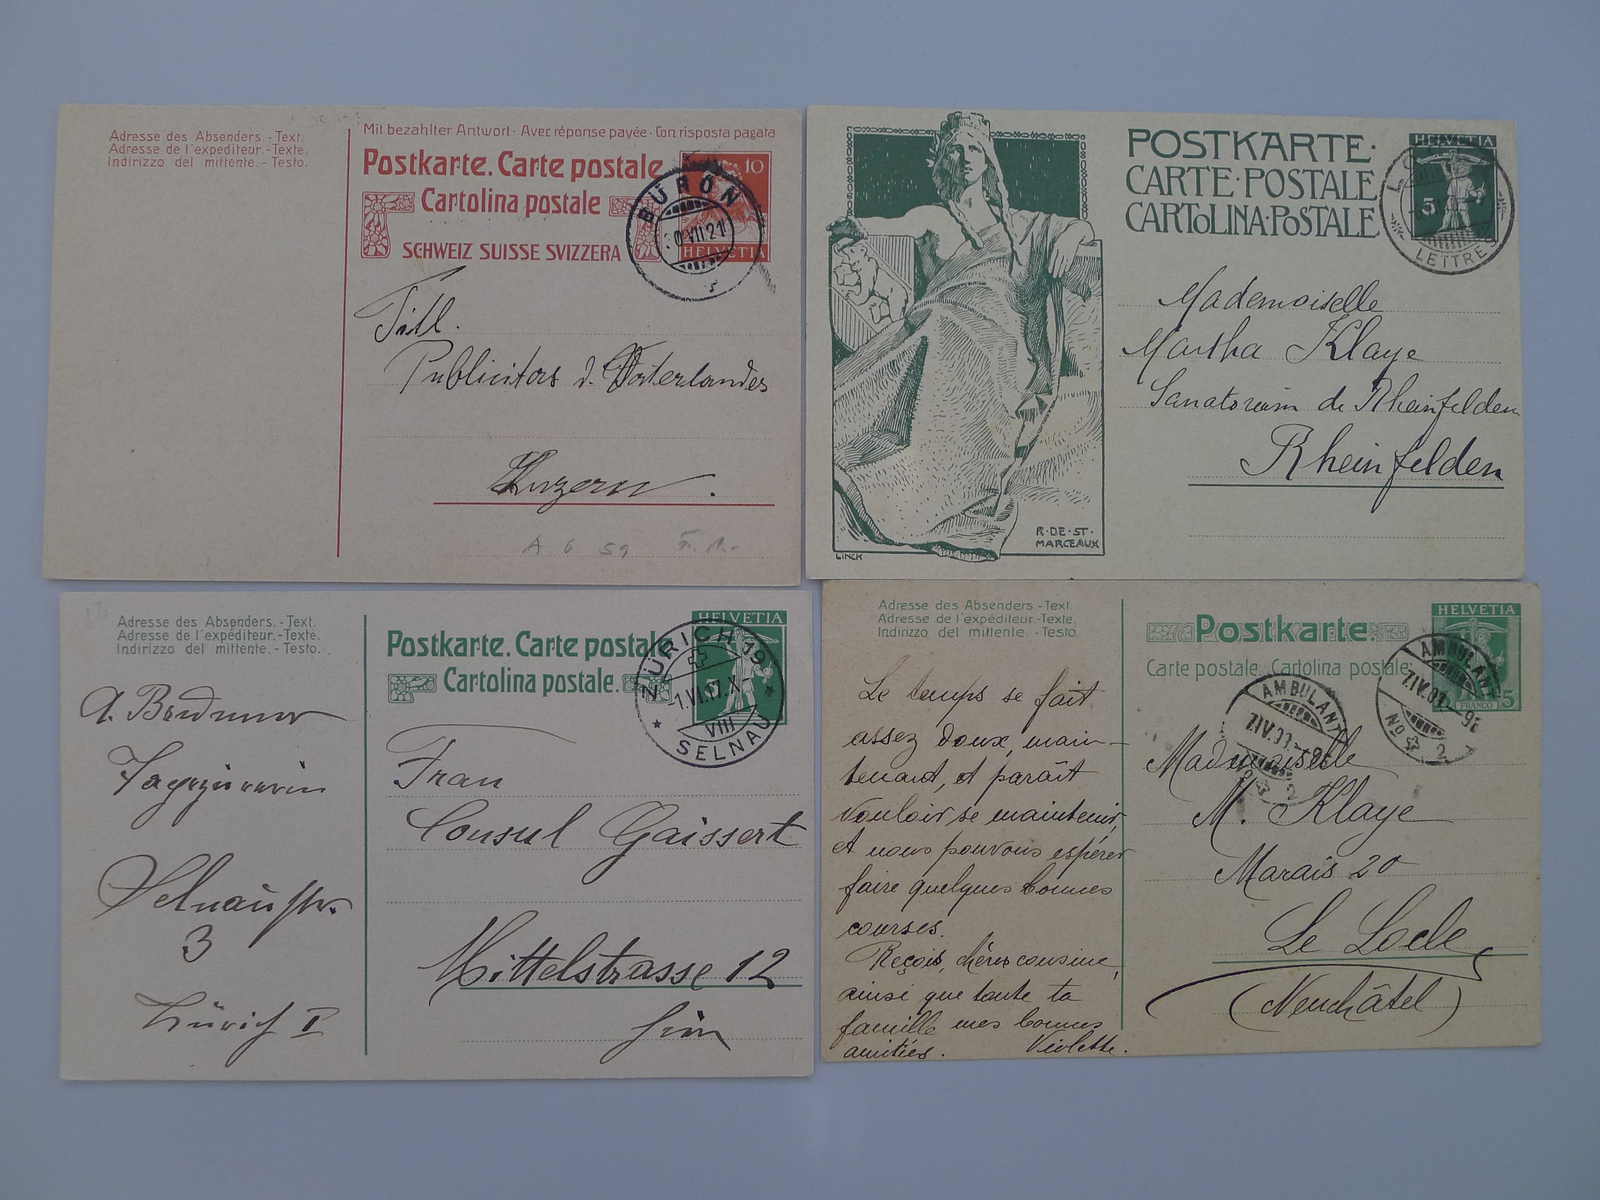 Adresse des Absenders. - Text.
Adresse de l'expéditeur. - Texte.
Indirizzo del mittente. - Testo.
Mit bezahlter Antwort · Avec réponse payée · Con risposta pagata
Postkarte. Carte postale
Cartolina postale
SCHWEIZ SUISSE SVIZZERA
10
HELVETIA
BÜRON
VII 21
Titl.
Publicitas d. Vaterlandes
Luzern.
A 6 59
POSTKARTE·
CARTE·POSTALE
CARTOLINA·POSTALE
HELVETIA
5
LETTRE
Mademoiselle
Martha Klaye
Sanatorium de Rheinfelden
Rheinfelden
R·DE·ST·
MARCEAUX
LINCK
Adresse des Absenders. - Text.
Adresse de l'expéditeur. - Texte.
Indirizzo del mittente. - Testo.
Postkarte. Carte postale
Cartolina postale.
HELVETIA
5
ZÜRICH 19
-1.VI.17.X-
VIII
SELNAU
A. Bodmer
Selnaustr.
3
Zürich I
Frau
Consul Gaissert
Mittelstrasse 12
hier
Adresse des Absenders - Text.
Adresse de l'expéditeur. - Texte.
Indirizzo del mittente - Testo.
Postkarte
Carte postale. Cartolina postale.
HELVETIA
FRANCO 5
AMBULANT
7.IV.09.-9
No 2
AMBULANT
7.IV.09.-9
2
Le temps se fait
assez doux, main-
tenant, et paraît
vouloir se maintenir,
et nous pouvons espérer
faire quelques bonnes
courses.
Reçois, chère cousine,
ainsi que toute ta
famille mes bonnes
amitiés. Violette.
Mademoiselle
M. Klaye
Marais 20
Le Locle
(Neuchâtel)